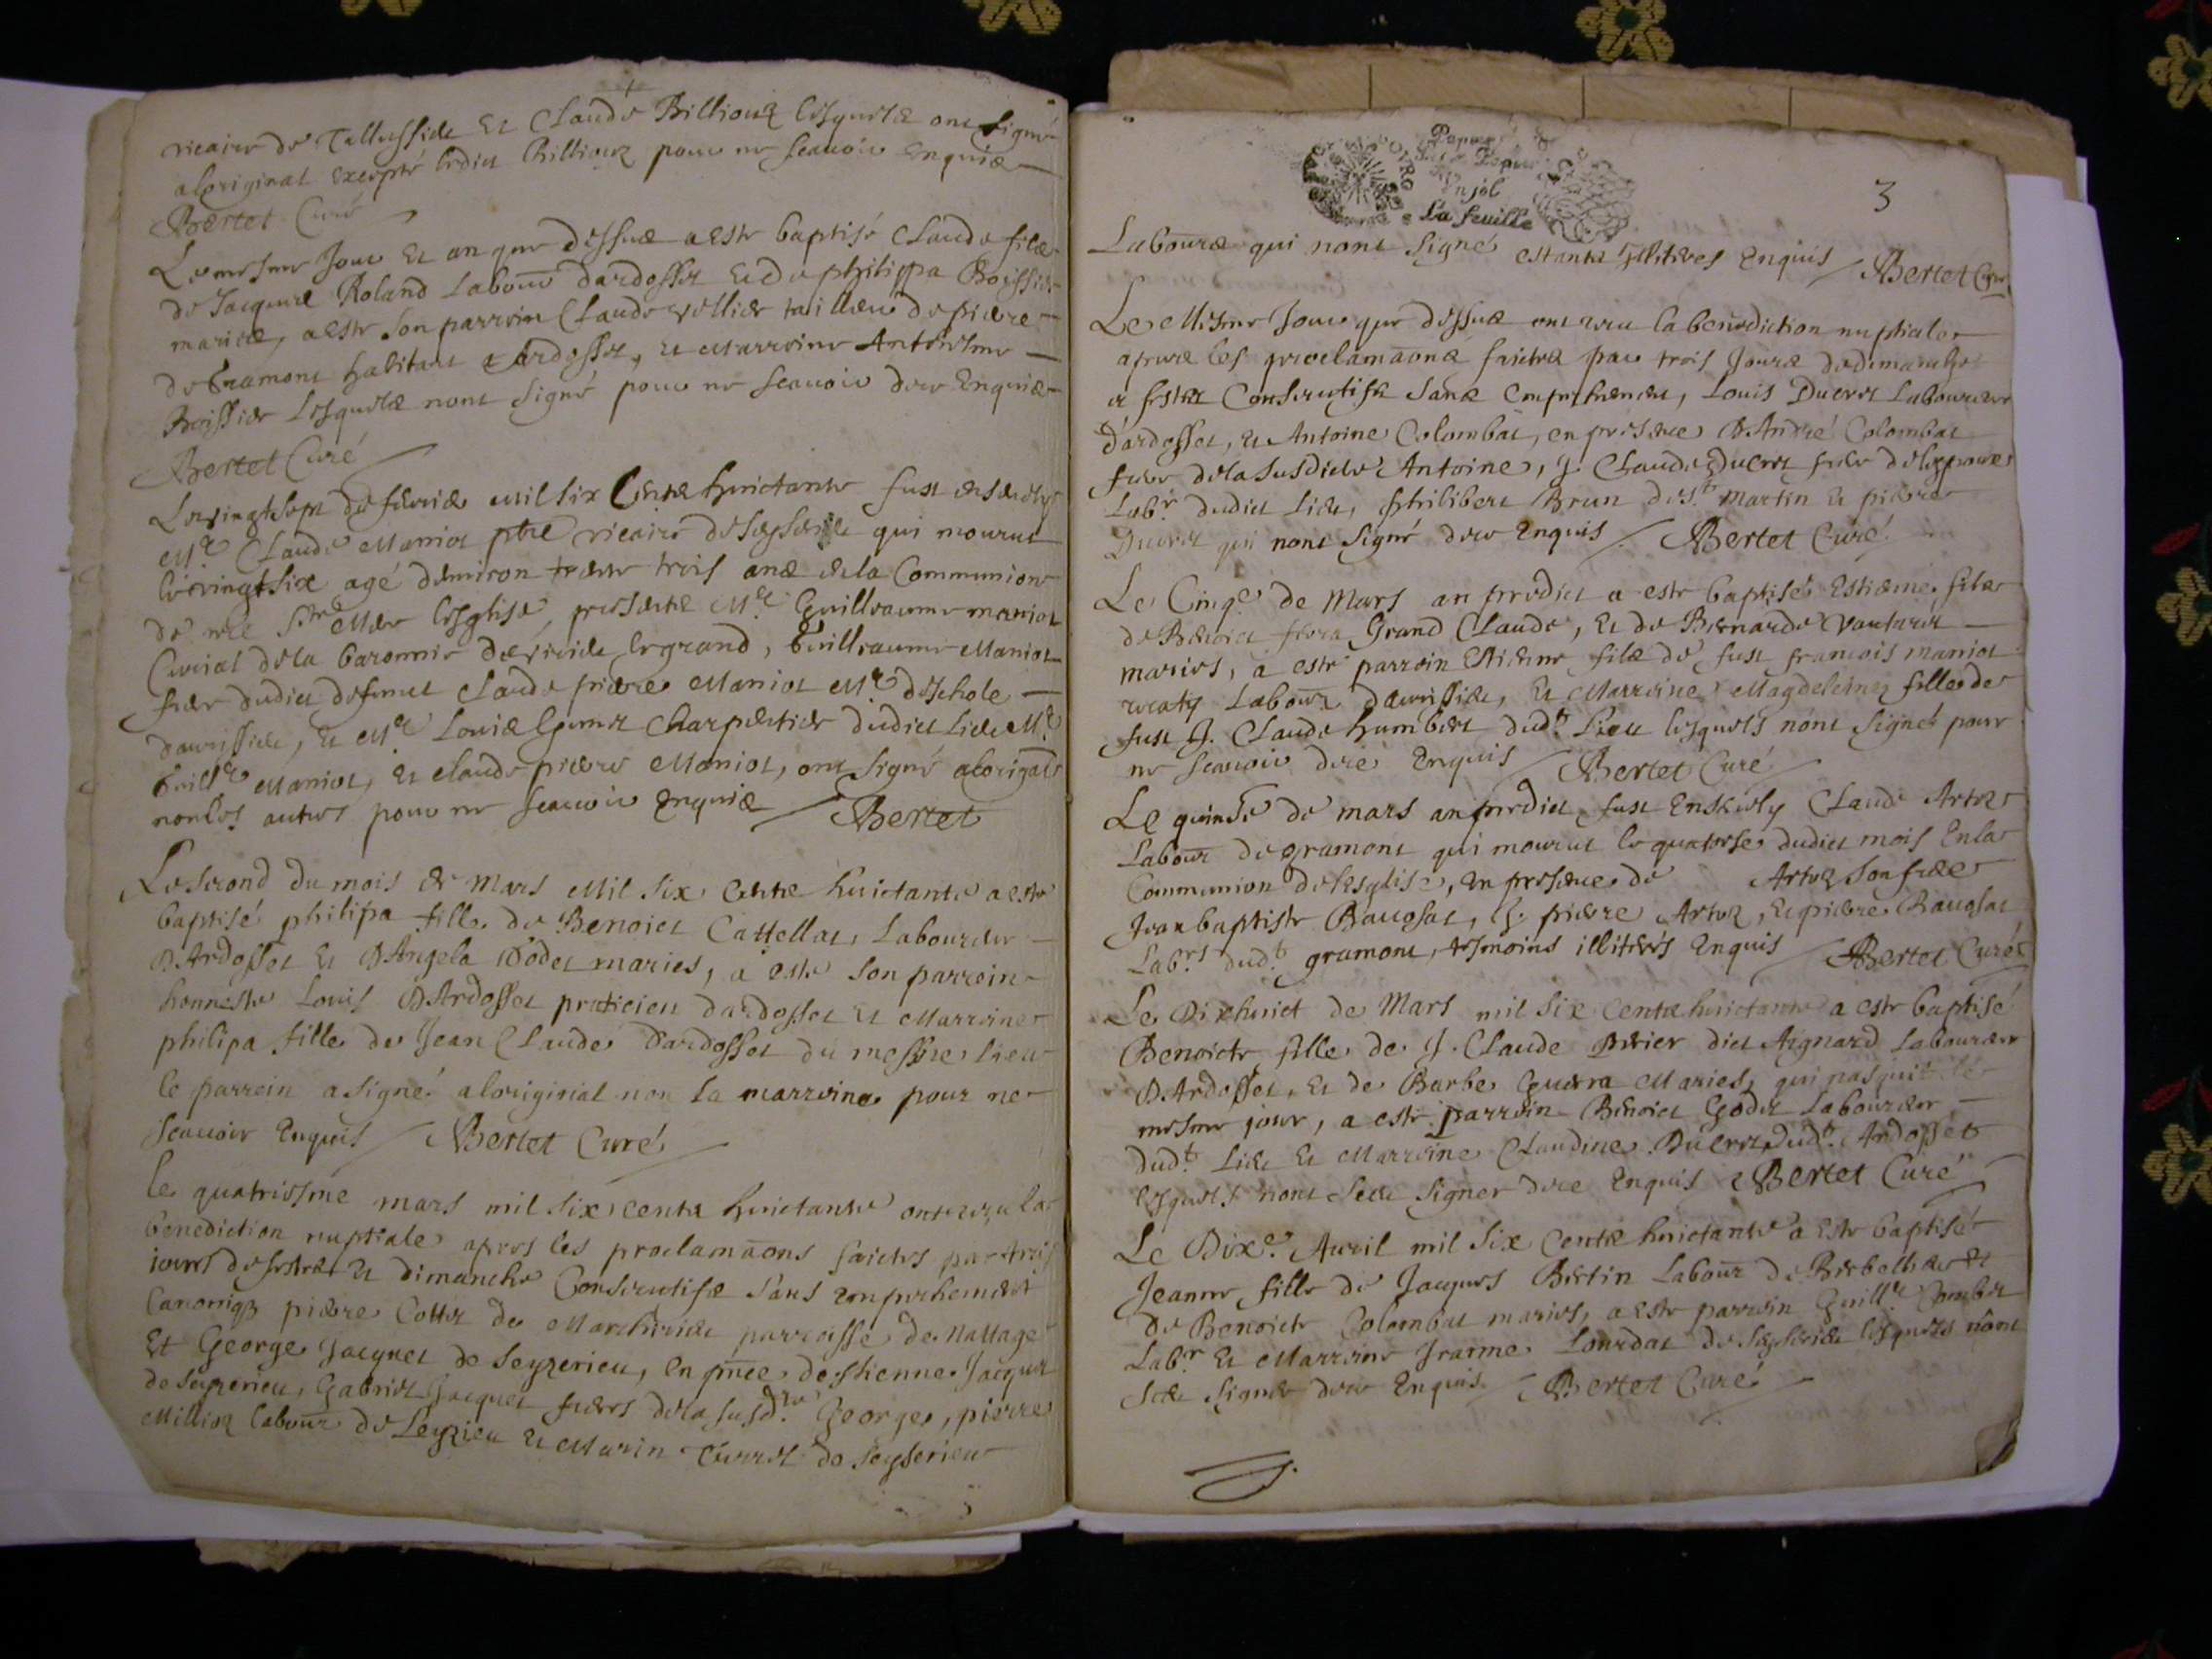 vicaire de Tallussieu et Claude Billiouz lesquels ont signé
aloriginal excepté ledict Billiouz pour ne scauoir enquis
Bertet Curé
Le mesme Jour et an que dessus a este baptisé Claude fils
de Jacques Roland Labour dardosset et de philippa Boissier
maries, a este son parrein Claude vellier tailleur de pierre
de Gramont habitant a ardosset, et Marreine Anthoisme
Boissier lesquels nont signé pour ne scauoir dece Enquis
Bertet Curé
Le vingt sept de feurier mil six Cents huictante fust enseuely
Mre Claude Maniot ptre vicaire de Seyserieu qui mourut
le vingt six agé denuiron trente trois ans en la Communion
de nre Ste Mere lesglise, presents Mre Guilliaume maniot
Curial dela baronnie de virieu le grand, Guilliaume Maniot
frere dudict defunct Claude pierre Maniot Mre deschole
daurissieu, et Mre Louis Charpentier dudict Lieu Mre
Guille Maniot, et claude pierre Maniot, ont signé aloriginal
non les autres pour ne scauoir enquis Bertet
Le second du mois de Mars Mil six Cents huictante a este
baptisé philipa fille de Benoict Cattellat, Laboureur
DArdosset et DAngela Godet maries, a este son parrein
honneste Louis DArdosset praticien dardosset et Marreine
philipa fille de Jean Claude Dardosset du mesme lieu
le parrein a signé aloriginal non la marreine pour ne
scauoir Enquis Bertet Curé
le quatriesme mars mil six cents huictante ont receu la
benediction nuptiale apres les proclamãons faictes par trois
iours de festes et dimanche Consecutifs sans empechement
Canoniq pierre Cottet de Marchirieu parroisse de Nattage
Et George Jacquet de Seyzerieu, en pnce destienne Jacquet
de Seyzerieu, Gabriel Jacquet freres de la susdte George, pierre
Millioz labour de Leyzieu et Marin Curret de Seyserieu
3
La feuille
Laboure qui nont Signé estants Illiteres Enquis Bertet Curé
Le Mesme Jour que dessus ont receu la benediction nuptiale
apres les proclamãons faictes par trois Jours de dimanche
et festes Consecutifs sans empechement, Louis Ducret Laboureur
dardosset, et Antoine Colombat, en presence DAndré Colombat
frere de la susdicte Antoine, J. Claude Ducret frere de lespoux
Labr dudict Lieu, philibert Brun de St martin et pierre
Ducret qui nont signé dece Enquis Bertet Curé
Le Cinqe de Mars an predict a este baptisé Estienne fils
de Benoict Grand Claude, et de Bernarde Vautaret
maries, a este parrein Estienne fils de fust francois maniot
Labour dauirissieu, et Marreine Magdeleine fille de
fust J. Claude humbert dudt Lieu lesquels nont signé pour
ne scauoir dece Enquis Bertet Curé
Le quinse de mars an predict fust Enseuely Claude Artoz
Labour de gramont qui mourut le quatorse dudict mois Enla
Communion de lesglise, en presence de Artoz son frere
Jean baptiste Baugsat, J. pierre Artoz, et pierre Baugsat
Labrs dudt gramont, tesmoins illiterés Enquis Bertet Curé
Le Dixhuict de Mars mil six cents huictante a este baptisé
Benoicte fille de J. Claude Berier dict Aignard Laboureur
DArdosset, et de Barbe Guerra Maries, qui nasquit le
mesme jour, a este parrein Benoict Godet Laboureur
dudt Lieu et Marreine Claudine Ducret dudt Ardosset
lesquels nont sceu signer dece Enquis Bertet Curé
Le Dixe Auril mil six cents huictante a este baptisé
Jeanne fille de Jacques Bertin Labour de et
de Benoicte Colombat maries, a este parrein Guille Combet
Labr et Marreine Jeanne Lourdat de Seyserieu lesquels nont
sceu signer dece Enquis. Bertet Curé